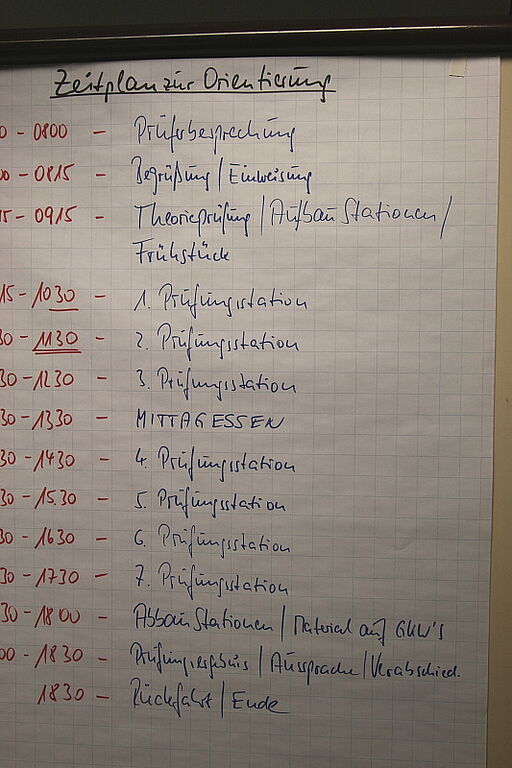 Zeitplan zur Orientierung
0 - 0800 - Prüferbesprechung
00 - 0815 - Begrüßung / Einweisung
15 - 0915 - Theorieprüfung / Aufbau Stationen /
Frühstück
15 - 1030 - 1. Prüfungsstation
30 - 1130 - 2. Prüfungsstation
30 - 1230 - 3. Prüfungsstation
30 - 1330 - MITTAGESSEN
30 - 1430 - 4. Prüfungsstation
30 - 15.30 - 5. Prüfungsstation
30 - 1630 - 6. Prüfungsstation
30 - 1730 - 7. Prüfungsstation
30 - 1800 - Abbau Stationen / Material auf GKW's
00 - 1830 - Prüfungsergebnis / Aussprache / Verabschied.
1830 - Rückfahrt / Ende